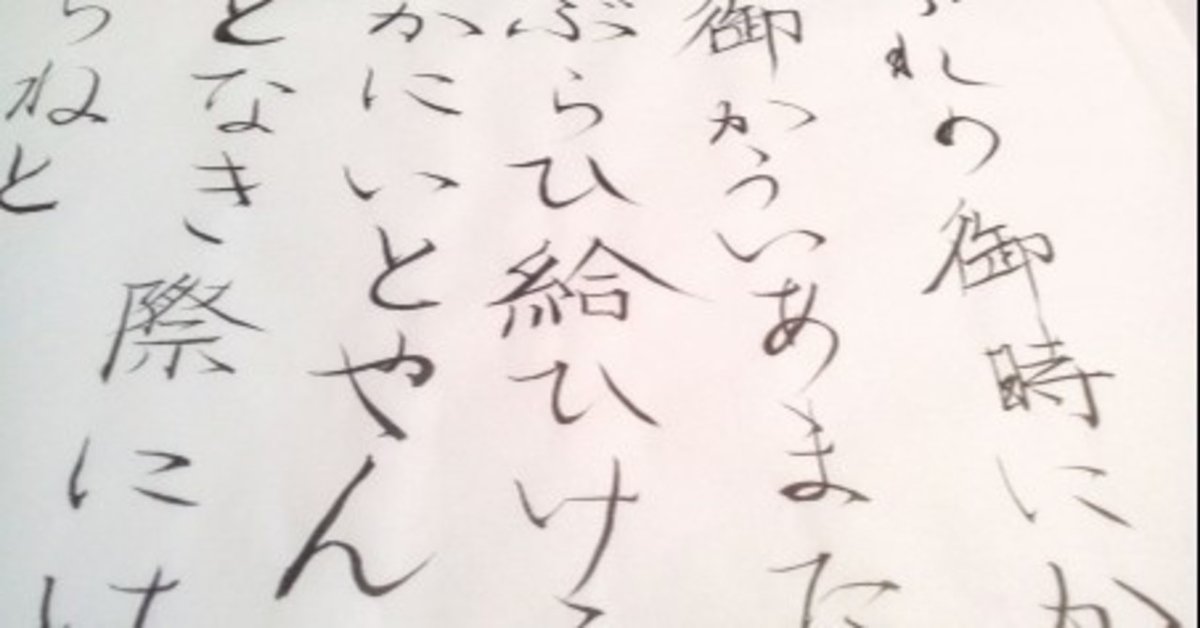 れの御時にか
御かういあまた
ぶらひ給ひけ
かにいとやん
となき際には
らねと